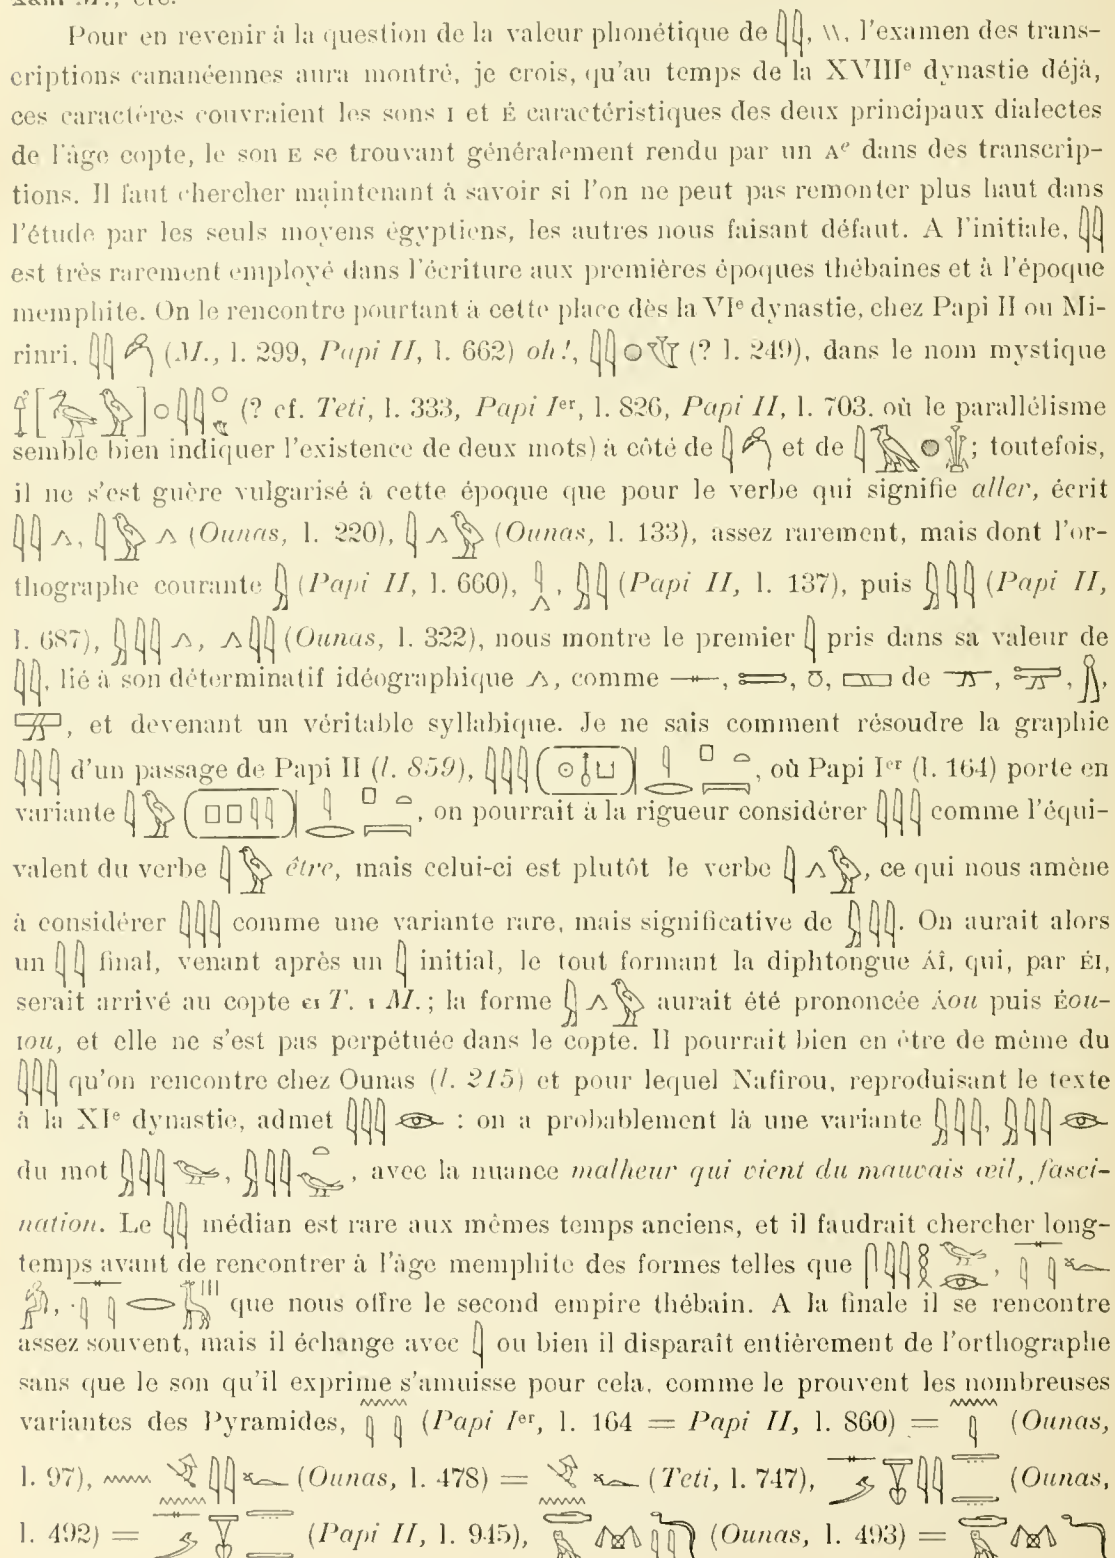 Pour en revenir à la question de la valeur phonétique de 𓇌, \\, l'examen des trans-
criptions cananéennes aura montré, je crois, qu'au temps de la XVIIIe dynastie déjà,
ces caractères couvraient les sons I et É caractéristiques des deux principaux dialectes
de l'âge copte, le son E se trouvant généralement rendu par un Ae dans des transcrip-
tions. Il faut chercher maintenant à savoir si l'on ne peut pas remonter plus haut dans
l'étude par les seuls moyens égyptiens, les autres nous faisant défaut. A l'initiale, 𓇌
est très rarement employé dans l'écriture aux premières époques thébaines et à l'époque
memphite. On le rencontre pourtant à cette place dès la VIe dynastie, chez Papi II ou Mi-
rinri, 𓇌 (M., l. 299, Papi II, l. 662) oh!, 𓇌 (? l. 249), dans le nom mystique
(? cf. Teti, l. 333, Papi Ier, l. 826, Papi II, l. 703. où le parallélisme
semble bien indiquer l'existence de deux mots) à côté de 𓇋 et de 𓇋 ; toutefois,
il ne s'est guère vulgarisé à cette époque que pour le verbe qui signifie aller, écrit
𓇌𓂻, 𓇋𓅱𓂻 (Ounas, l. 220), 𓇋𓂻𓅱 (Ounas, l. 133), assez rarement, mais dont l'or-
thographe courante 𓇍 (Papi II, l. 660), , 𓇍𓇋 (Papi II, l. 137), puis 𓇍𓇌 (Papi II,
l. 687), 𓇍𓇌𓂻, 𓂻𓇌 (Ounas, l. 322), nous montre le premier 𓇋 pris dans sa valeur de
𓇌, lié à son déterminatif idéographique 𓂻, comme 𓊃, 𓍿, 𓏌, 𓈙 de , , ,
, et devenant un véritable syllabique. Je ne sais comment résoudre la graphie
𓇋𓇋𓇋 d'un passage de Papi II (l. 859), 𓇋𓇋𓇋 , où Papi Ier (l. 164) porte en
variante 𓇋𓅱 , on pourrait à la rigueur considérer 𓇋𓇋𓇋 comme l'équi-
valent du verbe 𓇋𓅱 être, mais celui-ci est plutôt le verbe 𓇋𓂻𓅱, ce qui nous amène
à considérer 𓇋𓇋𓇋 comme une variante rare, mais significative de 𓇍𓇌. On aurait alors
un 𓇌 final, venant après un 𓇋 initial, le tout formant la diphtongue ÁÎ, qui, par ÉI,
serait arrivé au copte ⲉⲓ T. ⲓ M.; la forme 𓇍𓂻𓅱 aurait été prononcée Áou puis Éou-
Iou, et elle ne s'est pas perpétuée dans le copte. Il pourrait bien en être de même du
𓇋𓇋𓇋 qu'on rencontre chez Ounas (l. 215) et pour lequel Nafirou, reproduisant le texte
à la XIe dynastie, admet 𓇋𓇋𓇋𓁹 : on a probablement là une variante 𓇍𓇌, 𓇍𓇌𓁹
du mot 𓇍𓇌𓅪, 𓇍𓇌𓏏𓅪, avec la nuance malheur qui vient du mauvais œil, fasci-
nation. Le 𓇌 médian est rare aux mêmes temps anciens, et il faudrait chercher long-
temps avant de rencontrer à l'âge memphite des formes telles que 𓋴𓇌𓎛𓅪𓁹,
, que nous offre le second empire thébain. A la finale il se rencontre
assez souvent, mais il échange avec 𓇋 ou bien il disparaît entièrement de l'orthographe
sans que le son qu'il exprime s'amuisse pour cela, comme le prouvent les nombreuses
variantes des Pyramides, 𓈖𓇋𓇋 (Papi Ier, l. 164 = Papi II, l. 860) = 𓈖𓇋 (Ounas,
l. 97), (Ounas, l. 478) = (Teti, l. 747), (Ounas,
l. 492) = (Papi II, l. 945), (Ounas, l. 493) =